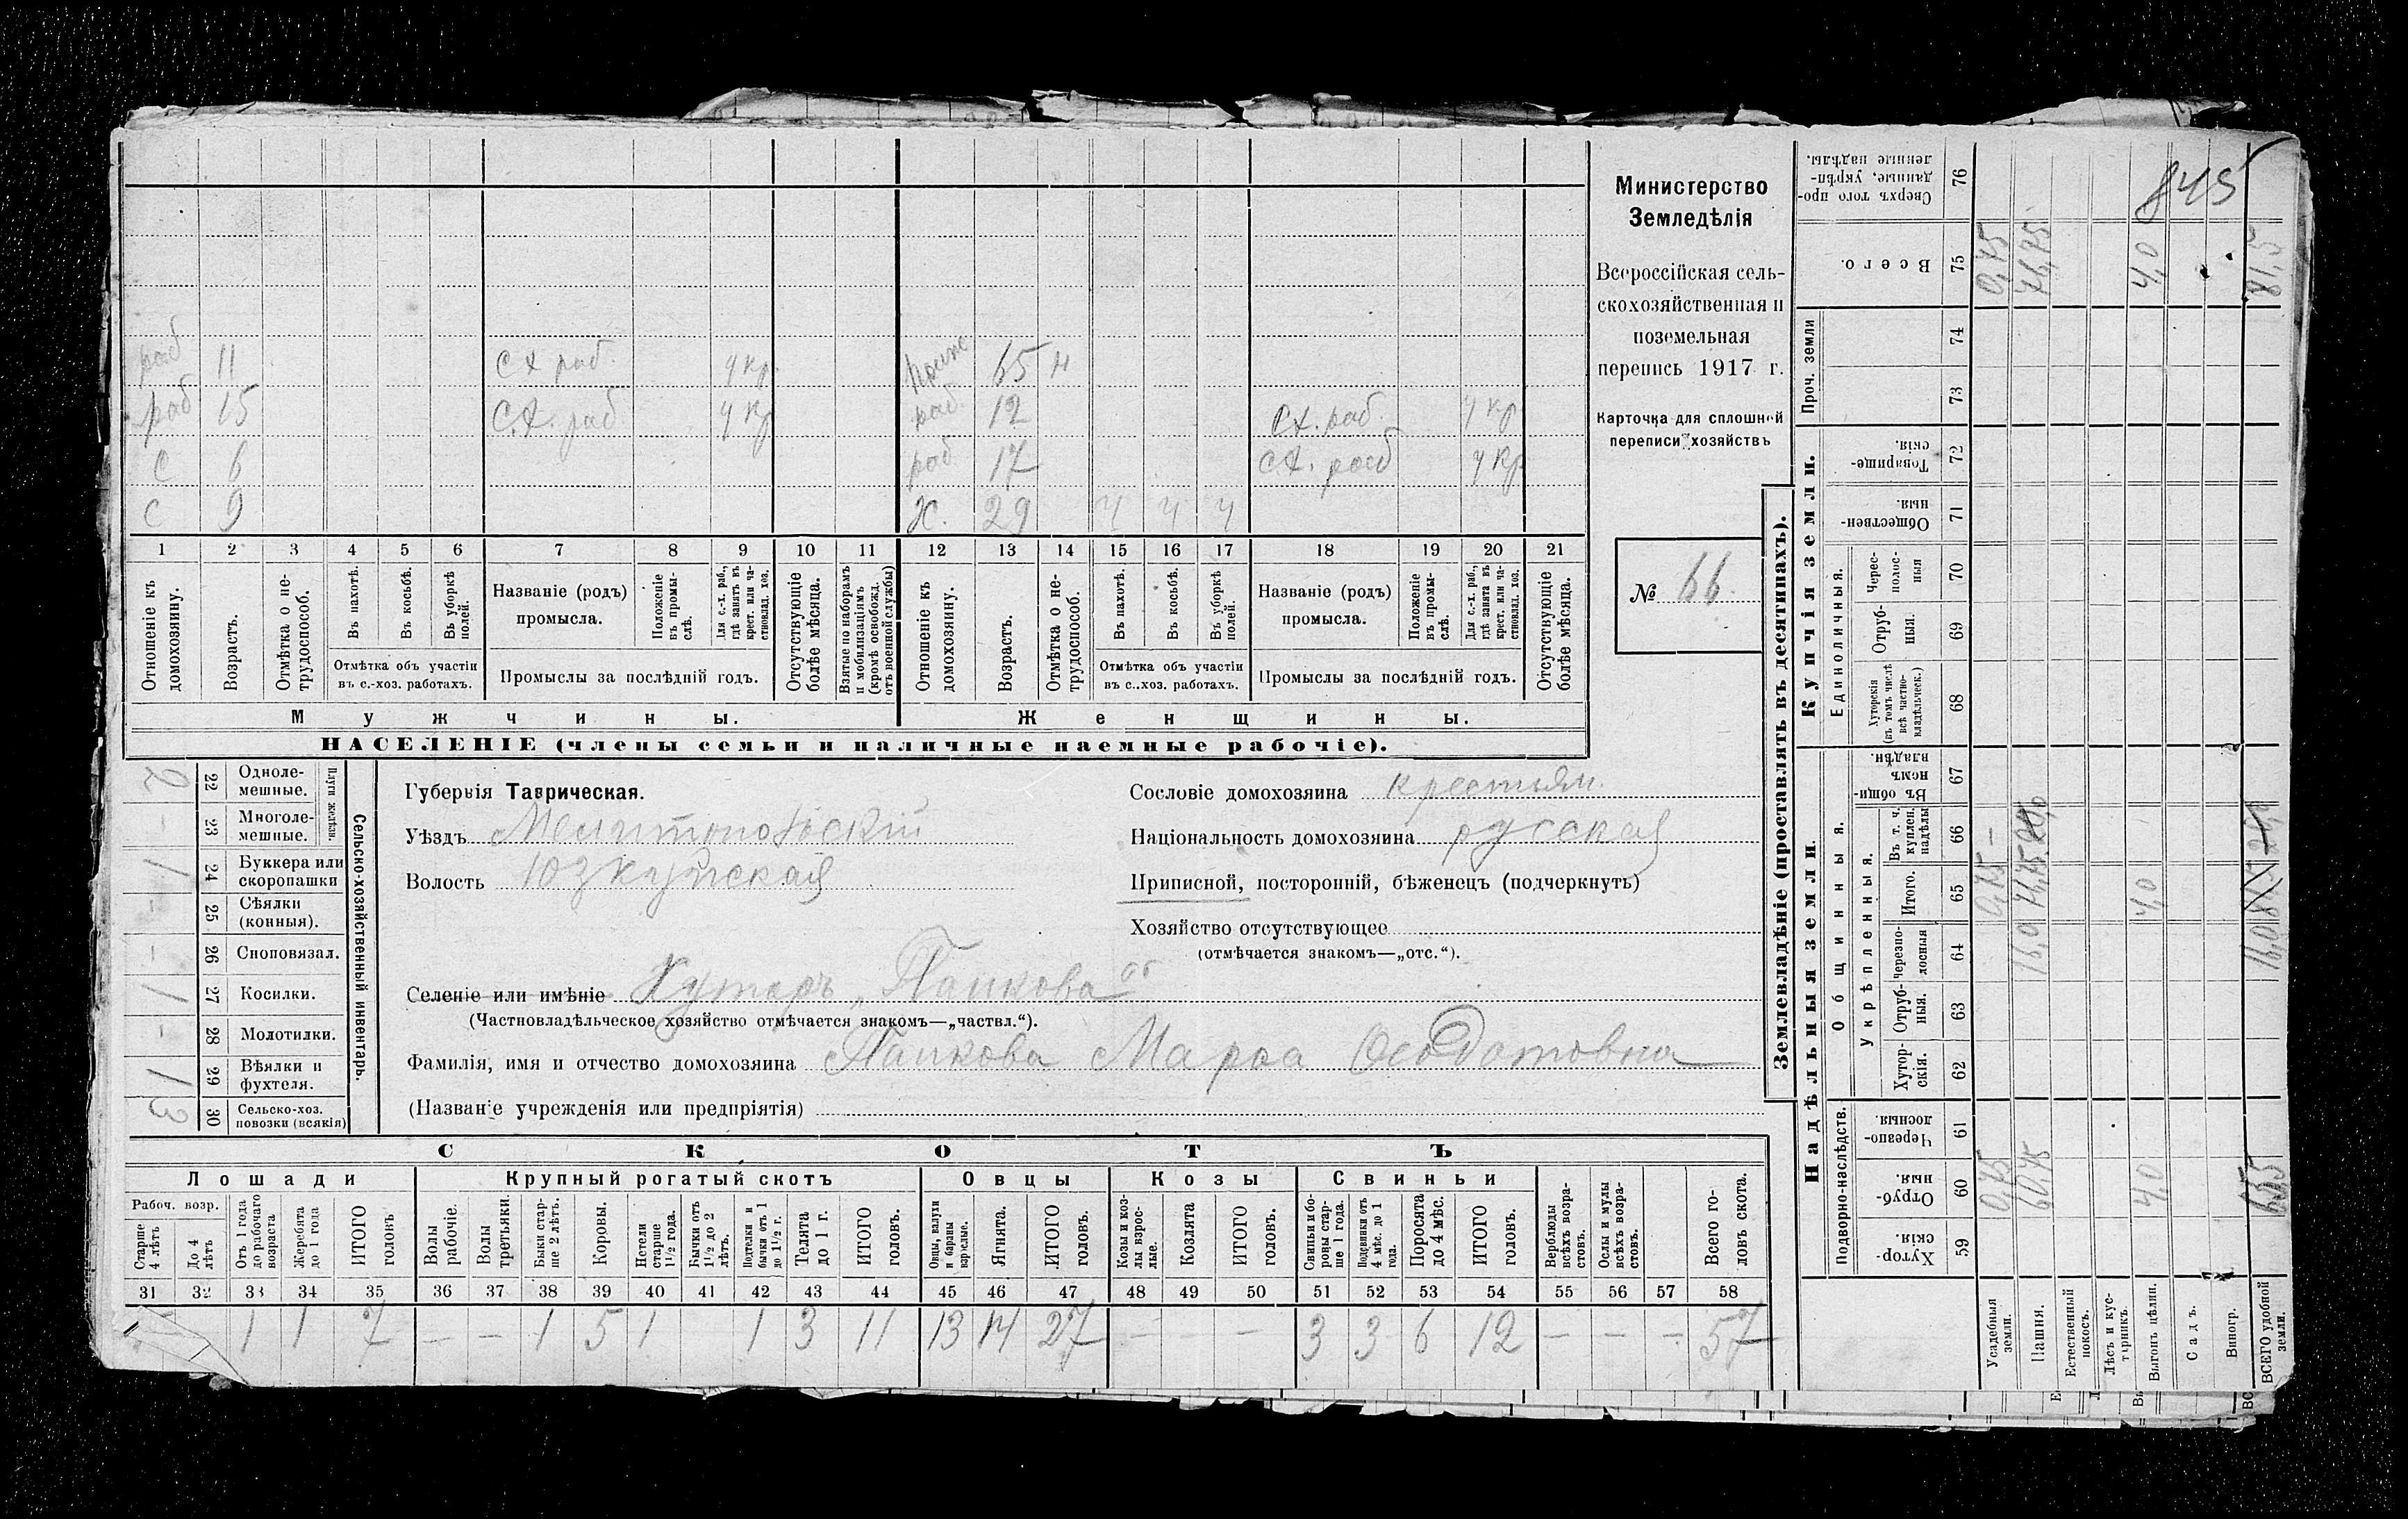 раб 11 СХ раб. у кр. 65 н
раб 15 С.Х. раб у кр раб. 12 СХ. раб. у кр
С 6 раб 17 СХ. раб у кр
С 9 Ж. 29 ч ч ч
1 2 3 4 5 6 7 8 9 10 11 12 13 14 15 16 17 18 19 20 21
Отношеніе къ домохозяину.
Возрастъ.
Отмѣтка о не-трудоспособ.
Въ пахотѣ.
Въ косьбѣ.
Въ уборкѣ полей.
Отмѣтка объ участіи
въ с.-хоз. работахъ.
Названіе (родъ)
промысла.
Положеніе въ промы-слѣ.
Для с.-х. раб., гдѣ занятъ въ крест. или ча-стновлад. хоз.
Промыслы за послѣдній годъ.
Отсутствующіе болѣе мѣсяца.
Взятые по наборамъ и мобилизаціямъ (кромѣ освобожд. отъ военной службы)
Отношеніе къ домохозяину.
Возрастъ.
Отмѣтка о не-трудоспособ.
Въ пахотѣ.
Въ косьбѣ.
Въ уборкѣ полей.
Отмѣтка объ участіи
въ с.-хоз. работахъ.
Названіе (родъ)
промысла.
Положеніе въ промы-слѣ.
Для с.-х. раб., гдѣ занята въ крест. или ча-стновлад. хоз.
Промыслы за послѣдній годъ.
Отсутствующіе болѣе мѣсяца.
Мужчины. Женщины.
НАСЕЛЕНІЕ (члены семьи и наличные наемные рабочіе).
Министерство
Земледѣлія
Всероссійская сель-
скохозяйственная и
поземельная
перепись 1917 г.
Карточка для сплошной
переписи хозяйствъ
№ 66
Сельско-хозяйственный инвентарь.
Плуги желѣзн.
2 22 Одноле-мешные.
- 23 Многоле-мешные.
1 24 Буккера или скоропашки
- 25 Сѣялки (конныя).
- 26 Сноповязал.
1 27 Косилки.
- 28 Молотилки.
1 29 Вѣялки и фухтеля.
3 30 Сельско-хоз. повозки (всякія)
Губернія Таврическая.
Уѣздъ Мелитопольскій
Волость Юзкуйская
Сословіе домохозяина крестьян.
Національность домохозяина русская
Приписной, посторонній, бѣженецъ (подчеркнуть)
Хозяйство отсутствующее
(отмѣчается знакомъ—„отс.“).
Селеніе или имѣніе Хуторъ „Папкова
(Частновладѣльческое хозяйство отмѣчается знакомъ—„частвл.“).
Фамилія, имя и отчество домохозяина Папкова Марѳа Ѳеодотовна
(Названіе учрежденія или предпріятія)
СКОТЪ
Лошади Крупный рогатый скотъ Овцы Козы Свиньи
Рабоч. возр.
Старше 4 лѣтъ
До 4 лѣтъ
Отъ 1 года до рабочаго возраста
Жеребята до 1 года
ИТОГО головъ
Волы рабочіе.
Волы третьяки.
Быки стар-ше 2 лѣтъ.
Коровы.
Нетели старше 1½ года.
Бычки отъ 1½ до 2 лѣтъ.
Подтелки и бычки отъ 1 до 1½ г.
Телята до 1 г.
ИТОГО головъ.
Овцы, валухи и бараны взрослые.
Ягнята.
ИТОГО головъ.
Козы и коз-лы взрос-лые.
Козлята
ИТОГО головъ.
Свиньи и бо-ровы стар-ше 1 года.
Подсвинки отъ 4 мѣс. до 1 года.
Поросята до 4 мѣс.
ИТОГО головъ.
Верблюды всѣхъ возра-стовъ.
Ослы и мулы всѣхъ возра-стовъ.
Всего го-ловъ скота.
31 32 33 34 35 36 37 38 39 40 41 42 43 44 45 46 47 48 49 50 51 52 53 54 55 56 57 58
1 1 7 - - 1 5 1 1 3 11 13 14 27 - - 3 3 6 12 - - - 57
Землевладѣніе (проставлять въ десятинахъ).
Надѣльныя земли. Купчія земли.
Подворно-наслѣдств.
Общинныя.
Укрѣпленныя.
Единоличныя.
Проч. земли
Сверхъ того про-данные, укрѣп-ленные надѣлы. 76
Всего. 75
74
73
Товарище-скія. 72
Обществен-ныя. 71
Черес-полос-ныя 70
Отруб-ныя. 69
Хуторскія (въ томъ числѣ всѣ частно-владѣльческ.) 68
Въ общи-номъ владѣн. 67
Въ т. ч. куплен. надѣлы 66
Итого. 65
Черезпо-лосныя 64
Отруб-ныя. 63
Хутор-скія. 62
Черезпо-лосныя 61
Отруб-ныя. 60
Хутор-скія. 59
Усадебныя земли. 0,75 0,75 - 0,75
Пашня. 60.75 16,0 76,75
Естественный покосъ.
Лѣсъ и кус-тарникъ.
Выгонъ цѣлин. 4,0 4,0 4,0
Садъ.
Виногр.
ВСЕГО удобной земли. 65,5 16,0 81,5
845